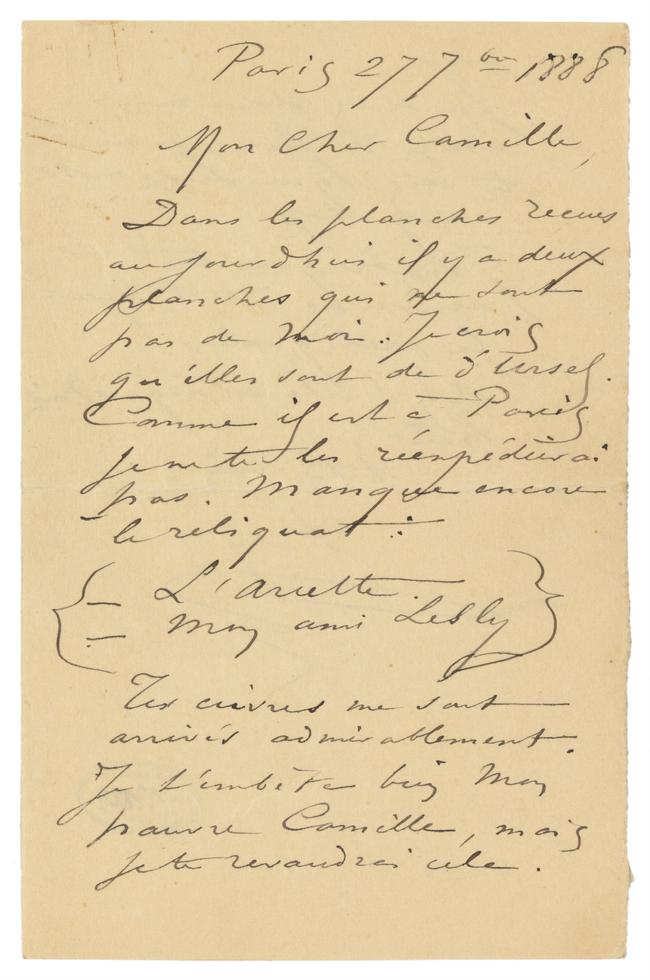 Paris 27 7bre 1888
Mon Cher Camille,
Dans les planches recues
aujourdhui il y a deux
planches qui ne sont
pas de moi. Je crois
qu'elles sont de d'Ursel.
Comme il est à Paris
je ne te les réexpédierai
pas. Manque encore
le reliquat :
{ — L'Ariette. }
{ — Mon ami Lesly }
Tes cuivres me sont
arrivés admirablement.
Je t'embête bien Mon
pauvre Camille, mais
je te revaudrai cela.